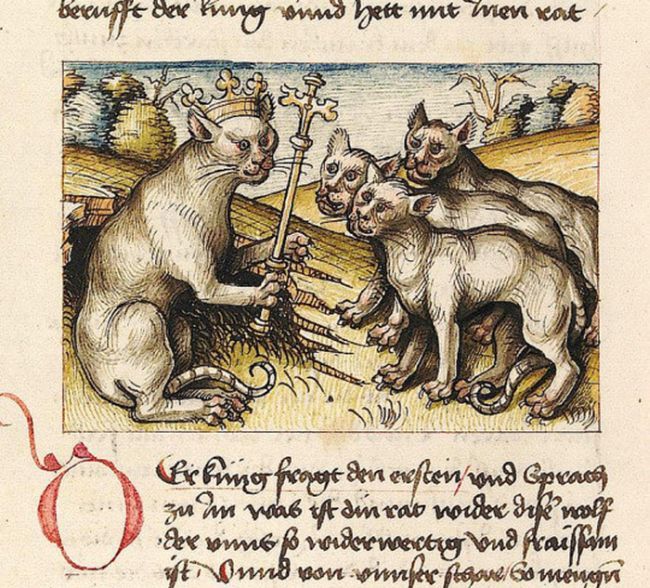 berufft der kung vnnd hett mit Inen rat /
DEr kung fragt den ersten / vnd Sprach
zu Im was ist din rat wider dise wolf
der vnns so widerwertig vnd fraissam
ist / Vnnd von vnnser schar / So